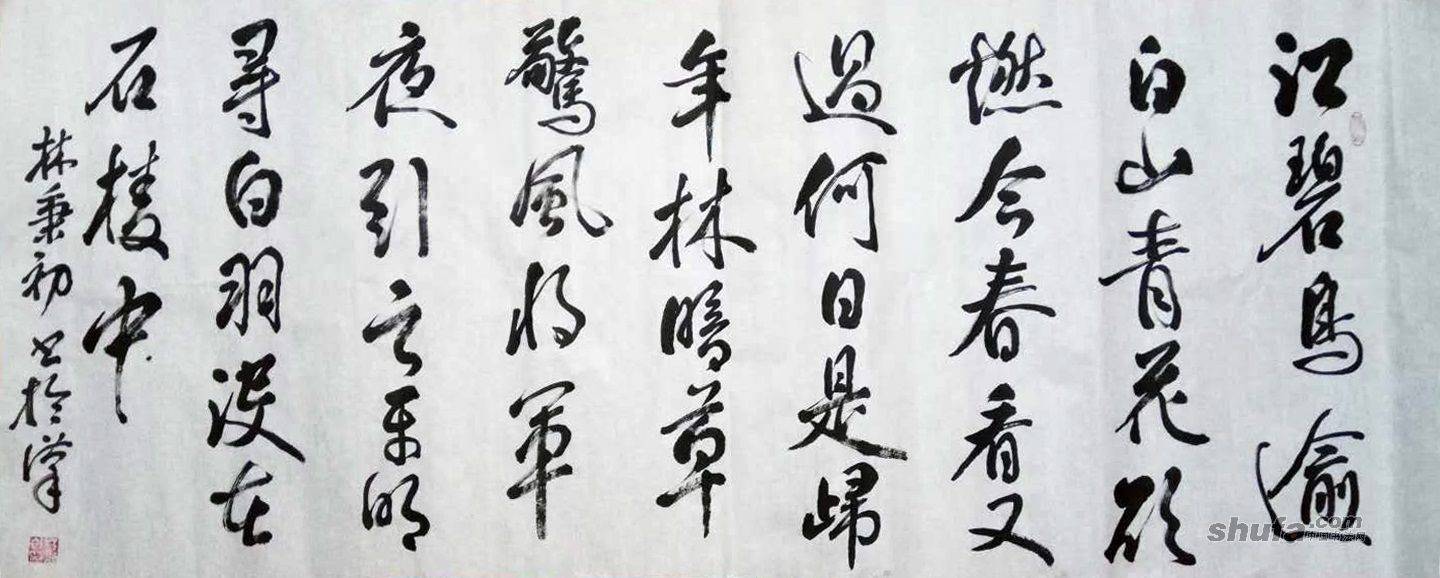 江碧鳥逾
白山青花欲
燃今春看又
過何日是歸
年林暗草
驚風將軍
夜引弓平明
尋白羽没在
石棱中
林秉初书於漢
shufa.com